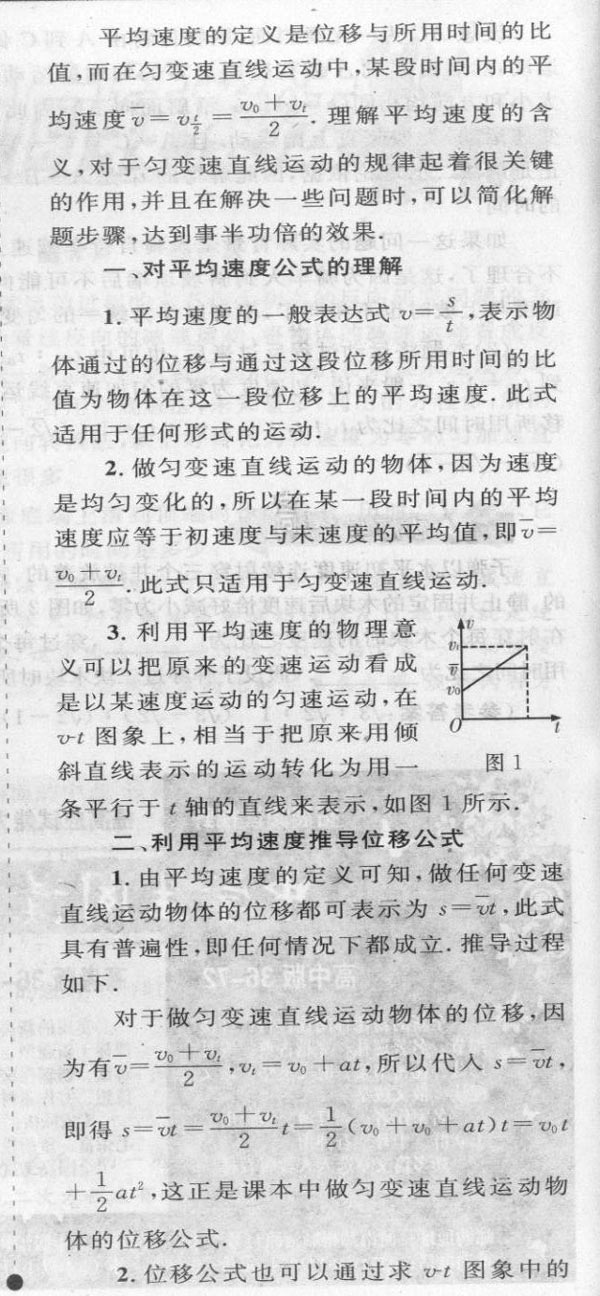 平均速度的定义是位移与所用时间的比
值,而在匀变速直线运动中,某段时间内的平
均速度 v̄=v_{t/2}=(v₀+vₜ)/2. 理解平均速度的含
义,对于匀变速直线运动的规律起着很关键
的作用,并且在解决一些问题时,可以简化解
题步骤,达到事半功倍的效果.
一、对平均速度公式的理解
1. 平均速度的一般表达式 v=s/t,表示物
体通过的位移与通过这段位移所用时间的比
值为物体在这一段位移上的平均速度. 此式
适用于任何形式的运动.
2. 做匀变速直线运动的物体,因为速度
是均匀变化的,所以在某一段时间内的平均
速度应等于初速度与末速度的平均值,即 v̄=
(v₀+vₜ)/2. 此式只适用于匀变速直线运动.
3. 利用平均速度的物理意
义可以把原来的变速运动看成
是以某速度运动的匀速运动,在
v-t 图象上,相当于把原来用倾
斜直线表示的运动转化为用一
条平行于 t 轴的直线来表示,如图 1 所示.
v
vₜ
v̄
v₀
O
t
图 1
二、利用平均速度推导位移公式
1. 由平均速度的定义可知,做任何变速
直线运动物体的位移都可表示为 s=v̄t,此式
具有普遍性,即任何情况下都成立. 推导过程
如下.
对于做匀变速直线运动物体的位移,因
为有 v̄=(v₀+vₜ)/2,vₜ=v₀+at,所以代入 s=v̄t,
即得 s=v̄t=(v₀+vₜ)/2 t=1/2(v₀+v₀+at)t=v₀t
+1/2at²,这正是课本中做匀变速直线运动物
体的位移公式.
2. 位移公式也可以通过求 v-t 图象中的